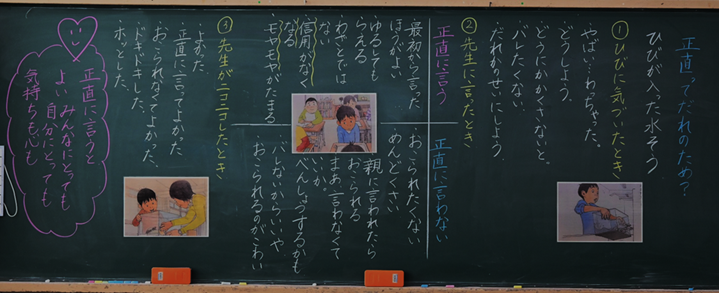 正直ってだれのため?
ひびが入った水そう
①ひびに気づいたとき
・やばい…わっちゃった。
・どうしよう。
・どうにかかくさないと。
・バレたくない
・だれかのせいにしよう。
②先生に言ったとき
正直に言う
・最初から言った
ほうがよい
・ゆるしても
らえる
・わざとでは
ない
・信用がなく
なる
・モヤモヤがたまる
正直に言わない
・おこられたくない
・めんどくさい
・親に言われたら
おこられる
・まあ、言わなくて
いいか。
・べんしょうするかも
・バレないからいいや
・おこられるのがこわい
③先生がニコニコしたとき
・よかった
・正直に言ってよかった
・おこられなくてよかった、
・ドキドキした、
・ホッとした、
正直に言うと
よい みんなにとっても
自分にとっても
気持ちも心も